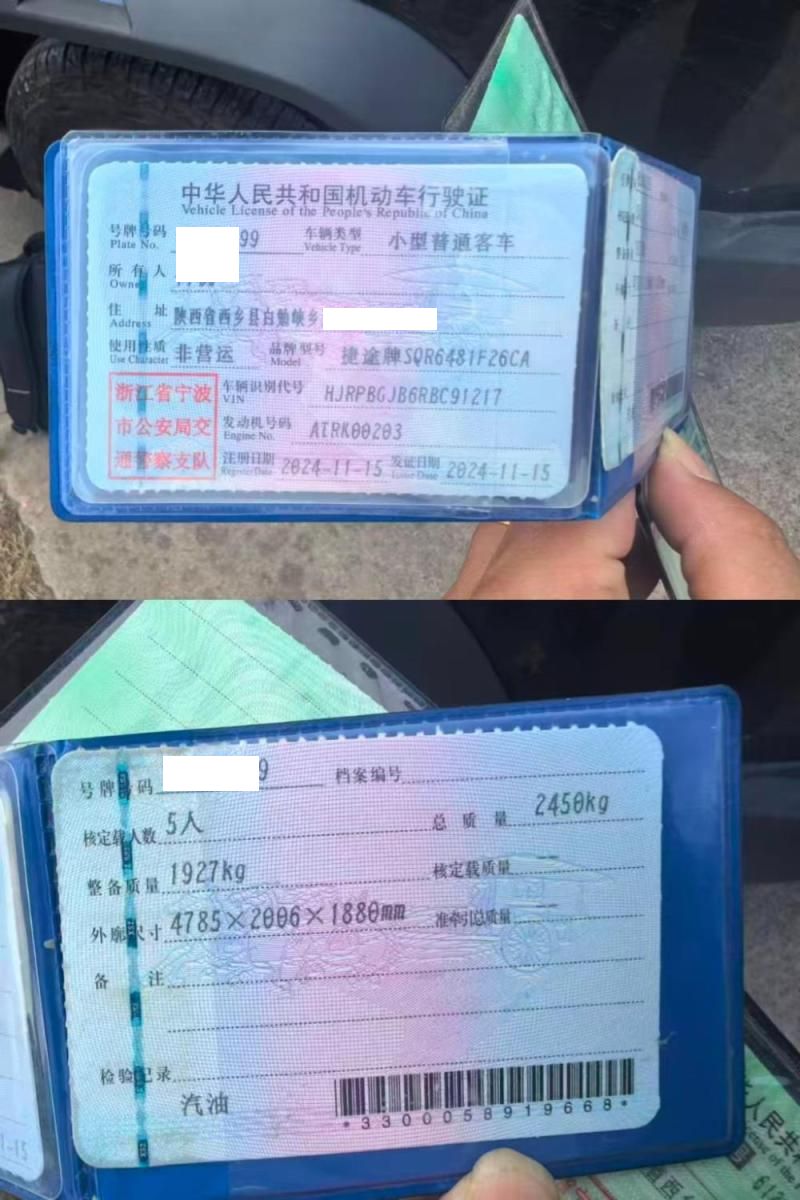 中华人民共和国机动车行驶证
Vehicle License of the People's Republic of China
号牌号码 99 车辆类型 小型普通客车
Plate No. Vehicle Type
所有人
Owner
住址 陕西省西乡县白勉峡乡
Address
使用性质 非营运 品牌型号 捷途牌SQR6481F26CA
Use Character Model
浙江省宁波
市公安局交
通警察支队
车辆识别代号 HJRPBGJB6RBC91217
VIN
发动机号码 ATRK00203
Engine No.
注册日期 2024-11-15 发证日期 2024-11-15
Register Date Issue Date
号牌号码 9 档案编号
核定载人数 5人 总质量 2450kg
整备质量 1927kg 核定载质量 --
外廓尺寸 4785×2006×1880mm 准牵引总质量 --
备注
检验记录
汽油
*3300058919668*
1-15
人民共
612